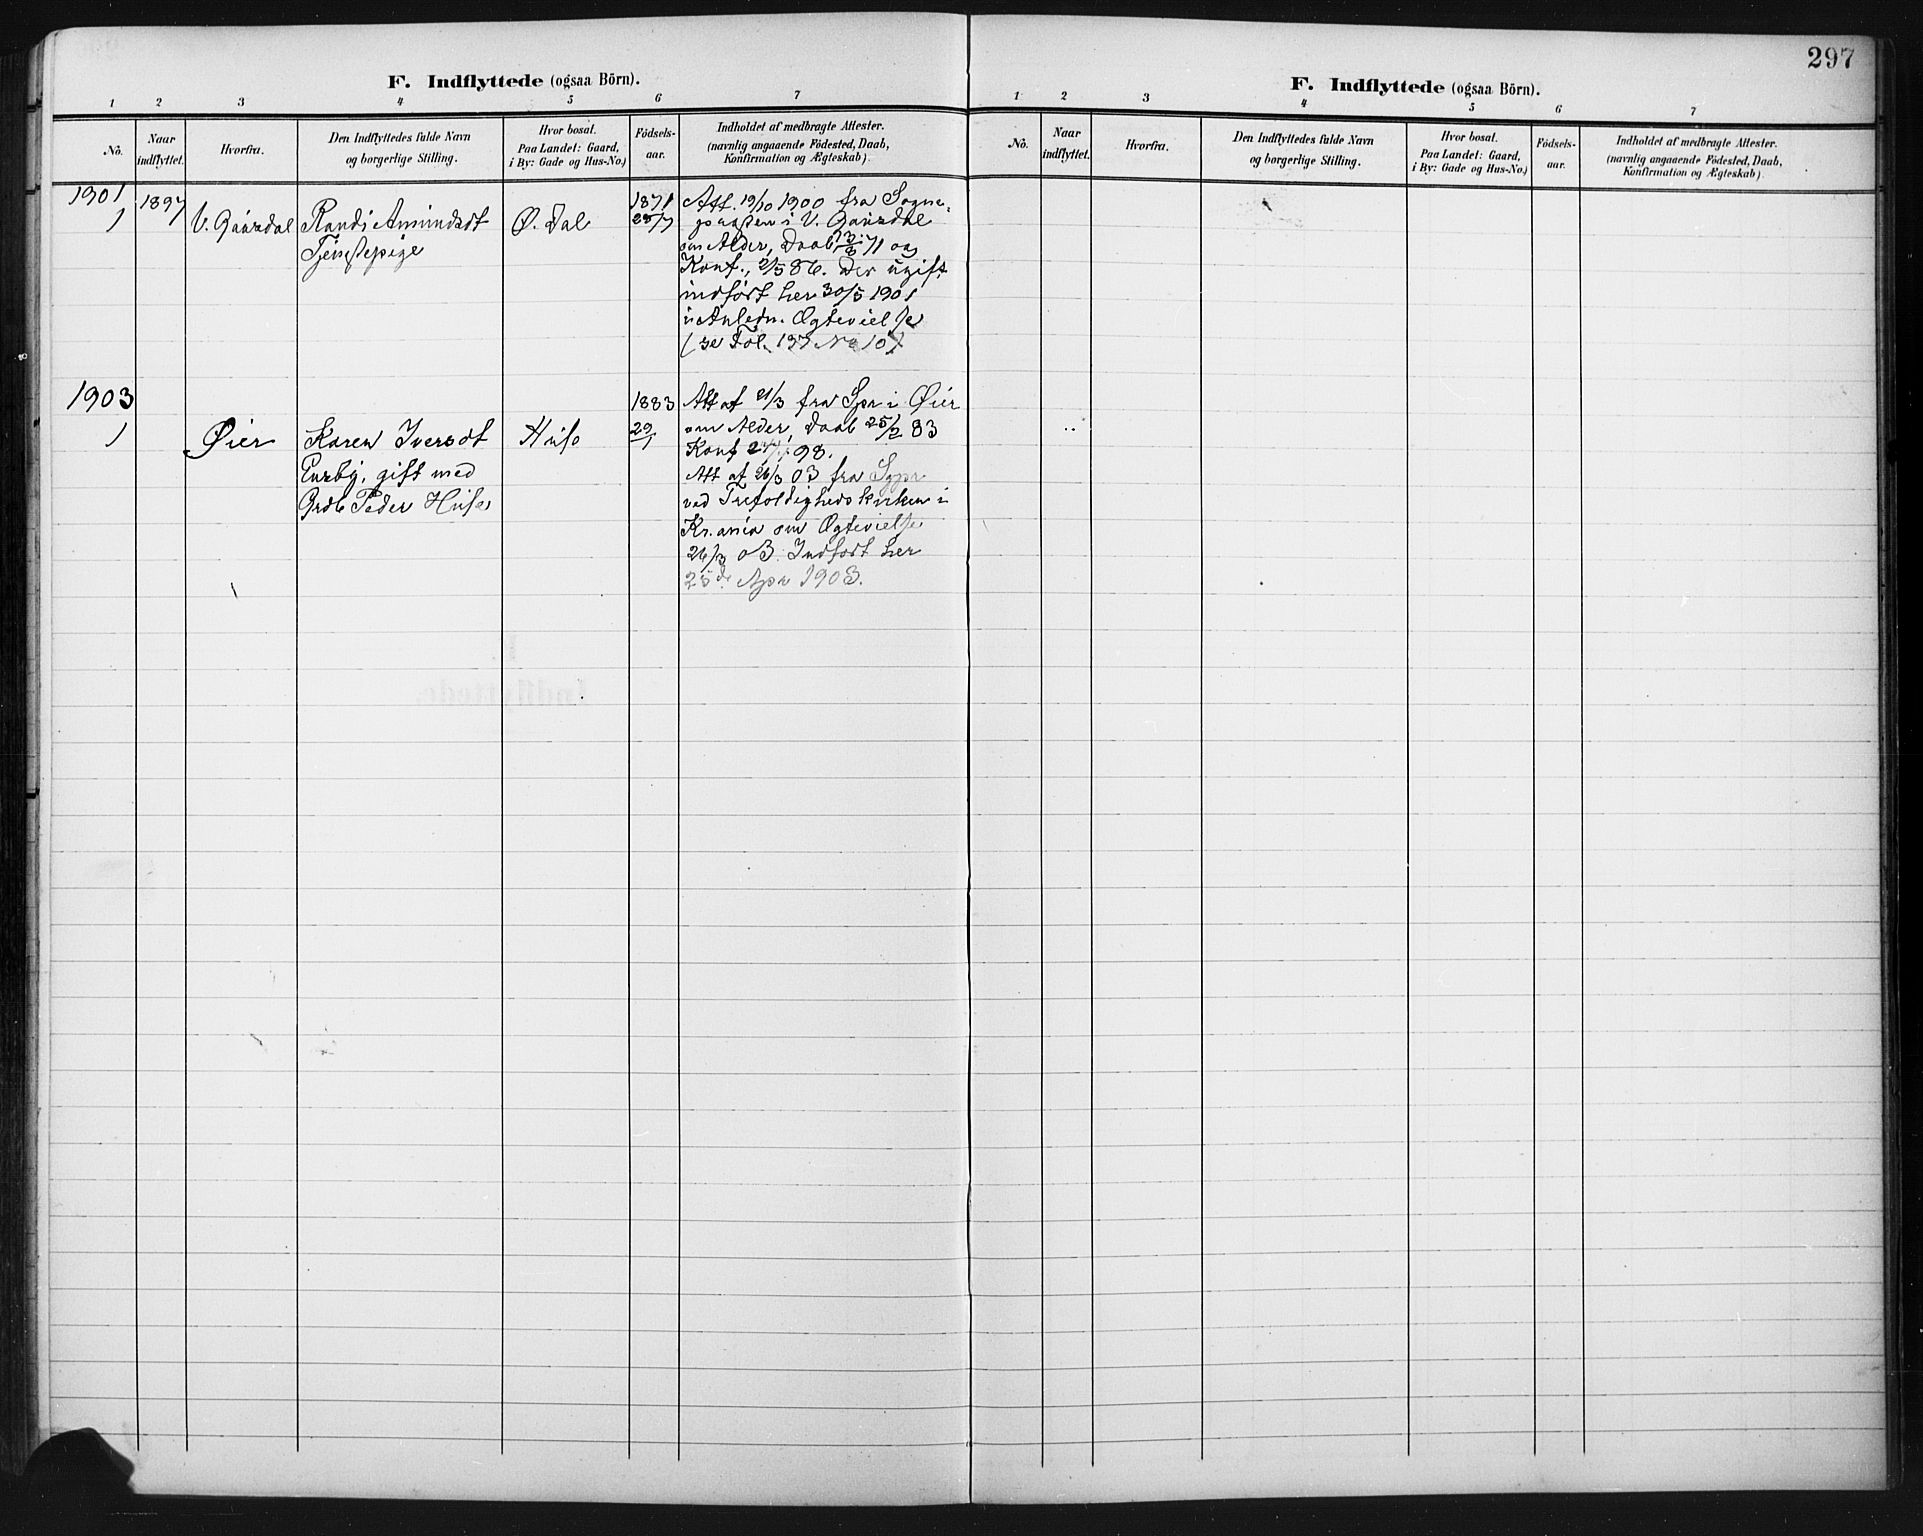 297
F. Indflyttede (ogsaa Börn).
1 2 3 4 5 6 7
No.
Naar indflyttet.
Hvorfra.
Den Indflyttedes fulde Navn
og borgerlige Stilling.
Hvor bosat.
Paa Landet: Gaard,
i By: Gade og Hus-No.)
Födsels-
aar.
Indholdet af medbragte Attester.
(navnlig angaaende Födested, Daab,
Konfirmation og Ægteskab).
1901
1
1897
V. Gausdal
Randi Amundsdt
Tjenestepige
Ø. Dal
1871
Att. 19/10 1900 fra Sogne-
præsten i V. Gausdal
om Alder, Daab 71 og
Konf., 2/5 86. Der ugift
indført her 30/5 1901
i Anledn. Ægtevielse
(se Fol. 137 No 10)
1903
1
Øier
Karen Iversdt
gift med
Grdb Peder Huse
Huse
1883
29/1
Att af 21/3 fra Spr i Øier
om Alder, Daab 25/2 83
Konf 98.
Att af 26/3 03 fra Sgpr
ved Trefoldighedskirken i
Kr.ania om Ægtevielse
26/3 03. Indført her
25de Apr 1903.
F. Indflyttede (ogsaa Börn).
1 2 3 4 5 6 7
No.
Naar indflyttet.
Hvorfra.
Den Indflyttedes fulde Navn
og borgerlige Stilling.
Hvor bosat.
Paa Landet: Gaard,
i By: Gade og Hus-No.)
Födsels-
aar.
Indholdet af medbragte Attester.
(navnlig angaaende Födested, Daab,
Konfirmation og Ægteskab).